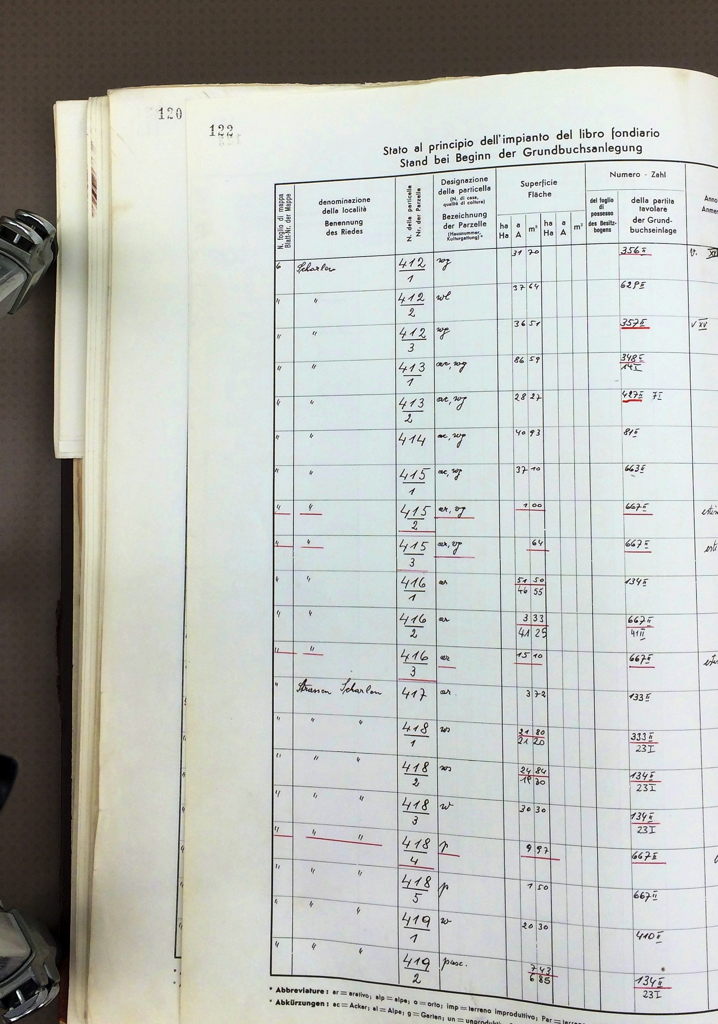 120
122
Stato al principio dell'impianto del libro fondiario
Stand bei Beginn der Grundbuchsanlegung
N. foglio di mappa
Blatt-Nr. der Mappe
denominazione
della località
Benennung
des Riedes
N. della particella
Nr. der Parzelle
Designazione
della particella
(N. di casa,
qualità di coltura)
Bezeichnung
der Parzelle
(Hausnummer,
Kulturgattung)
Superficie
Fläche
ha a m² ha a m²
Ha A Ha A
Numero - Zahl
del foglio di
possesso
des Besitz-
bogens
della partita
tavolare
der Grund-
buchseinlage
6 Scharlen 412/1 wg 31 70 356 II
" " 412/2 wl 37 64 629 II
" " 412/3 wg 36 51 357 II
" " 413/1 ac, wg 86 59 348 II 14 I
" " 413/2 ac, wg 28 27 427 II 7 I
" " 414 ac, wg 40 93 81 II
" " 415/1 ac, wg 37 10 663 II
" " 415/2 1 00 667 II
" " 415/3 64 667 II
" " 416/1 ar 51 50 46 55 134 II
" " 416/2 ar 3 33 41 25 667 II 41 II
" " 416/3 ar 15 10 667 II
" Strassen Scharlen 417 ar 3 72 133 II
" " " 418/1 ws 21 80 21 20 333 II 23 I
" " " 418/2 ws 24 84 19 30 134 II 23 I
" " " 418/3 w 30 30 134 II 23 I
" " " 418/4 p 9 97 667 II
" " " 418/5 p 1 50 667 II
" " " 419/1 w 20 30 410 II
" " " 419/2 pasc. 7 43 6 85 134 II 23 I
* Abbreviature: ar = arativo; alp = alpe; o = orto; imp = terreno improduttivo; Par = terreno
* Abkürzungen: ac = Acker; al = Alpe; g = Garten; un = unproduktiv